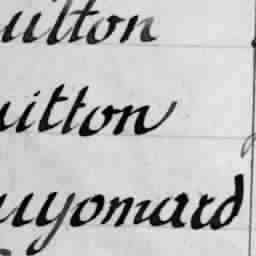 uilton
uitton
uyomard